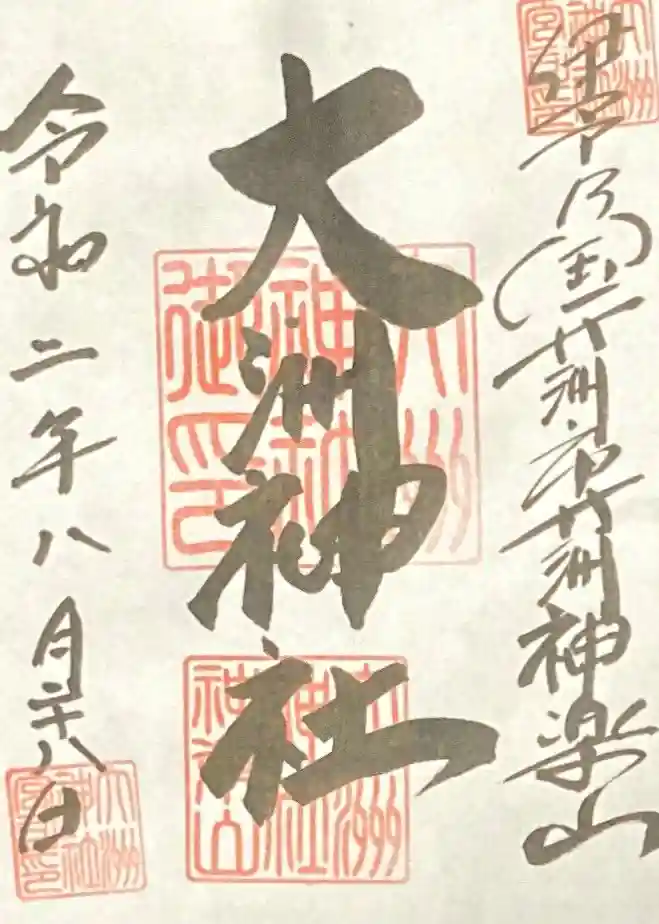 伊予国大洲市大洲神楽山
大洲神社
令和二年八月二十八日
大洲神社御印
大洲神社神楽山
大洲神社宮司之印